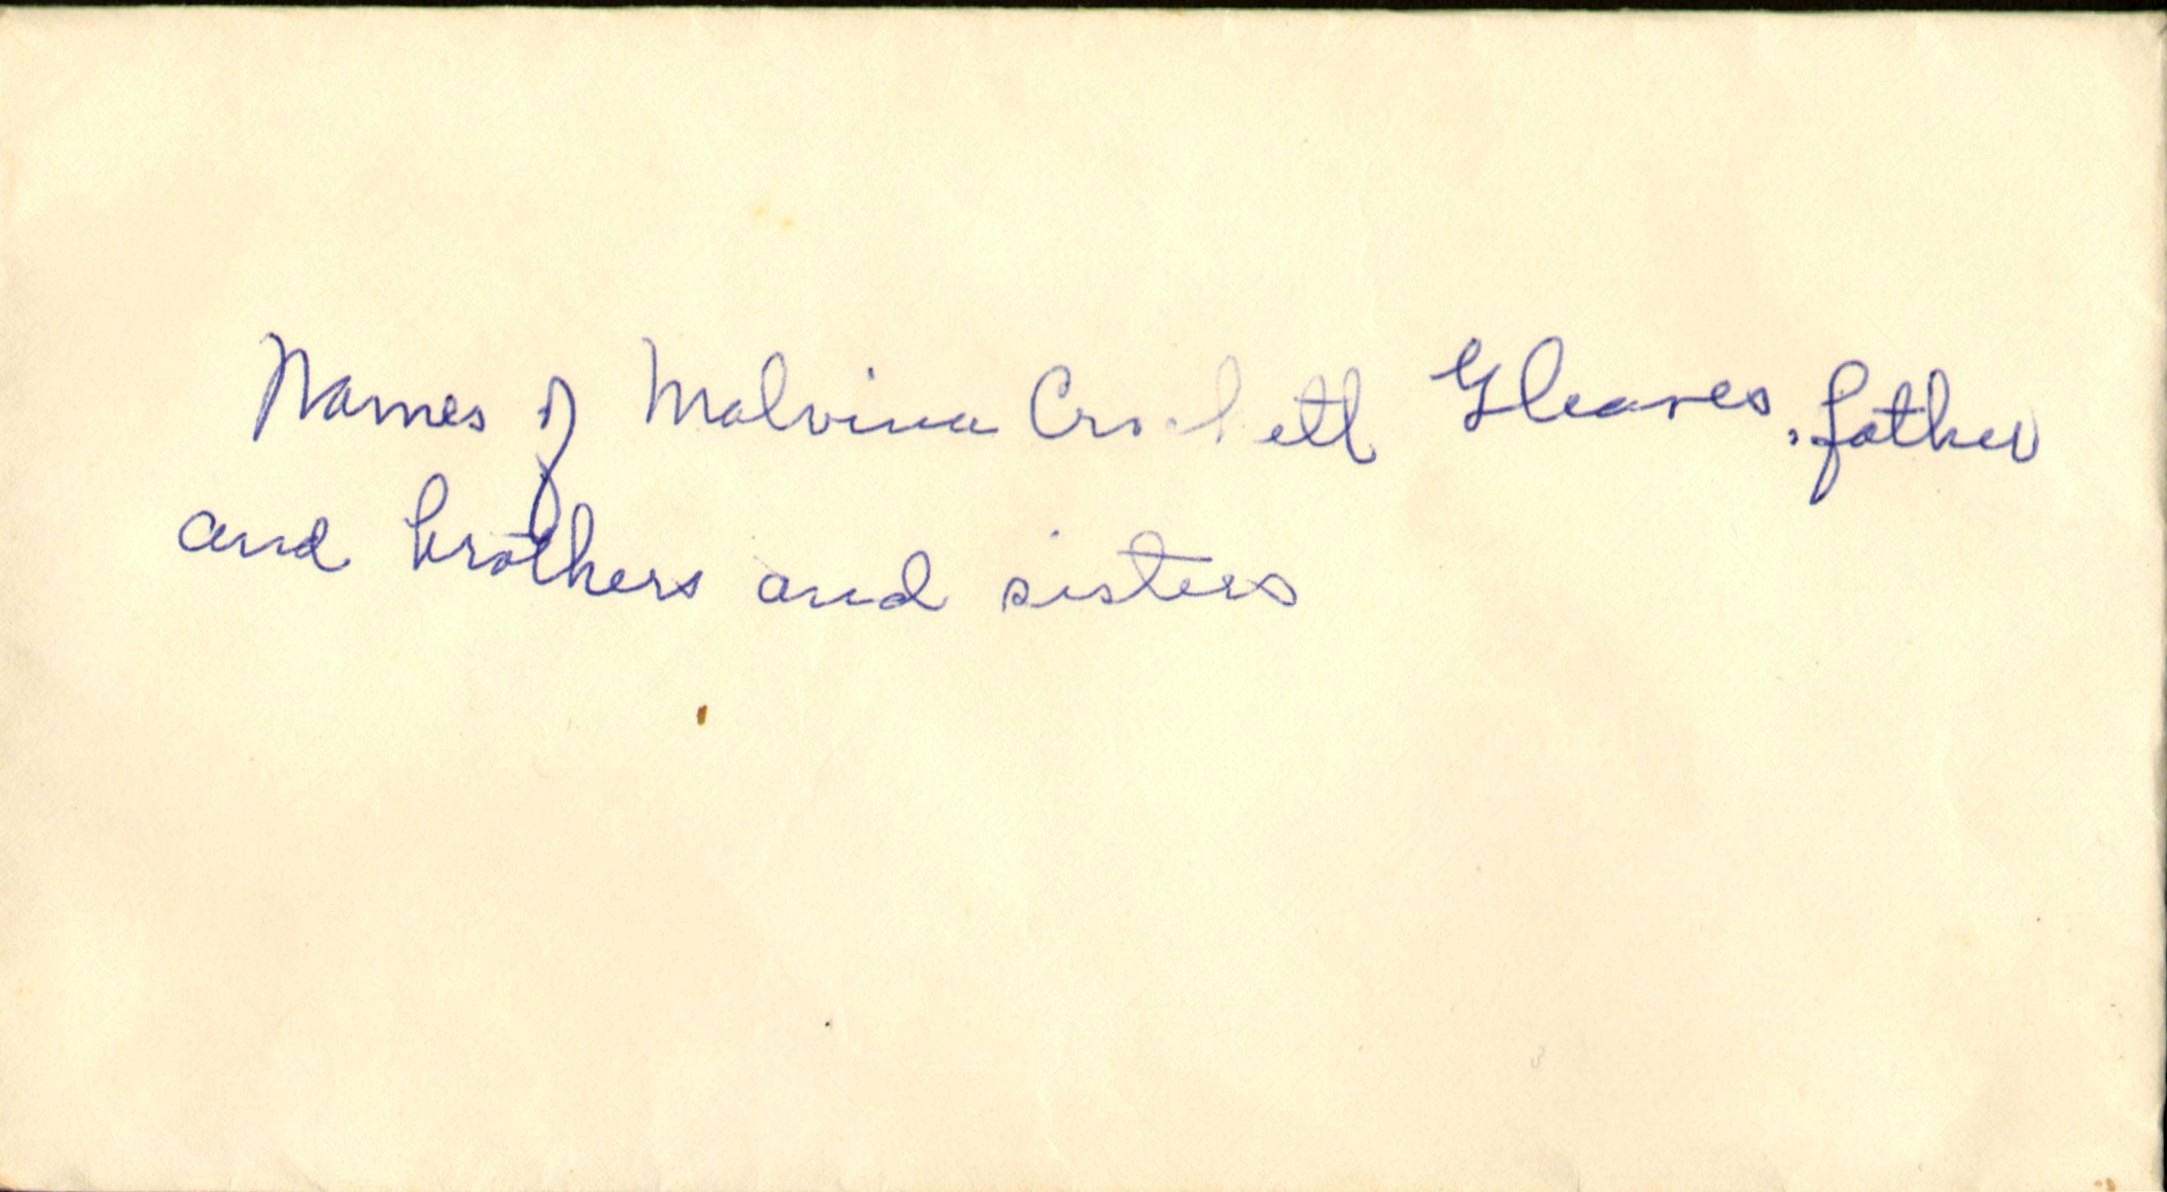 Names of Malvina Crockett Gleaves, father
and brothers and sisters